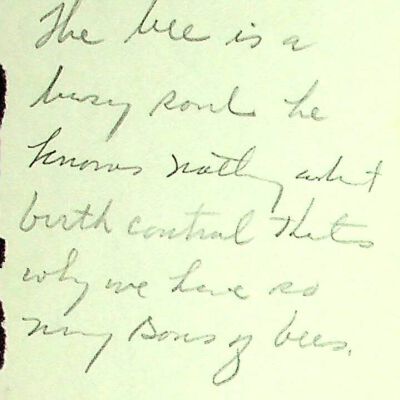 The bee is a
busy soul he
knows nothing about
birth control thats
why we have so
many Sons of bees.